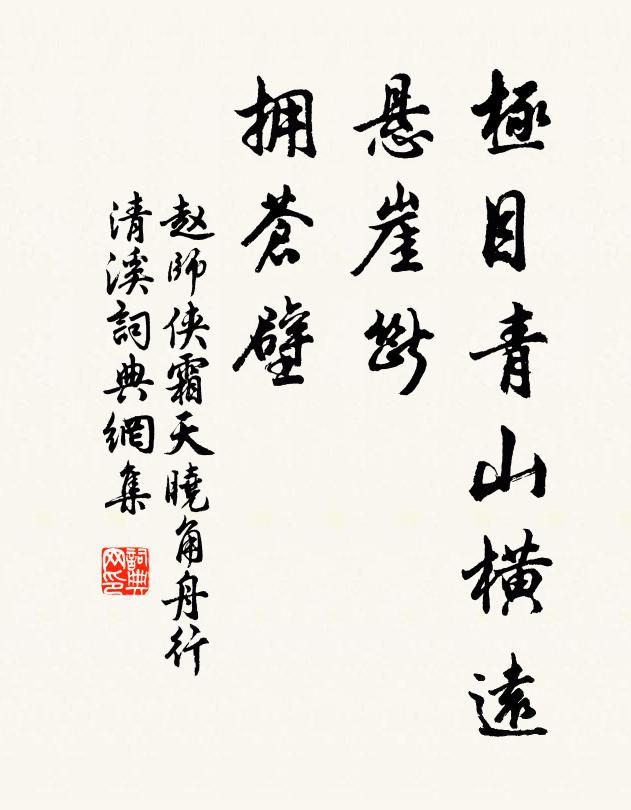 極目青山橫遠
悬崖斷
拥蒼壁
赵師侠霜天曉角舟行
清溪詞典網集
詞典网印